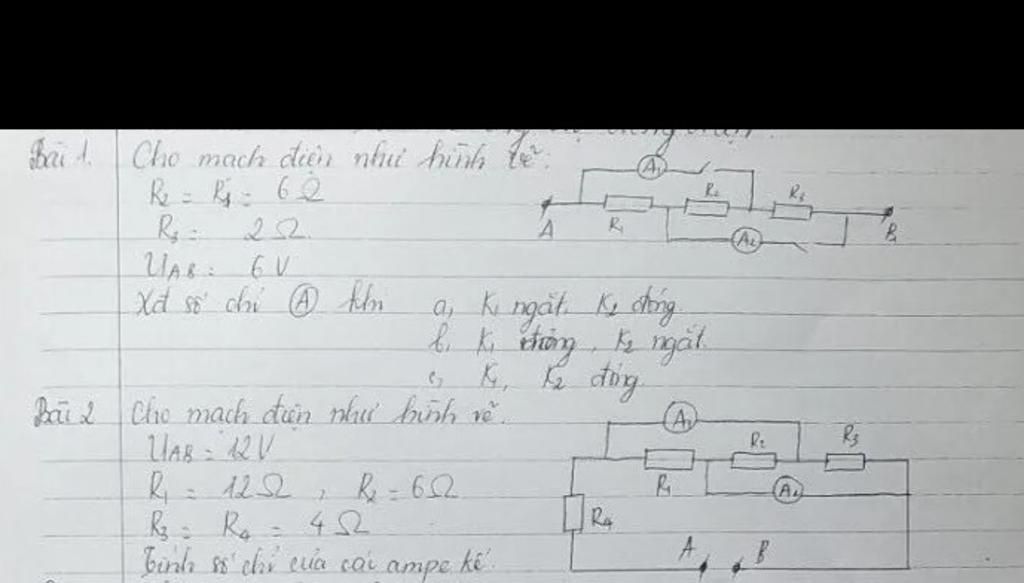 Bài 1. Cho mạch điện như hình vẽ:
R₂ = R₁ = 6 Ω
R₃ = 2 Ω.
U_AB = 6 V
Xđ số chỉ Ⓐ khi a, K₁ ngắt. K₂ đóng.
b, K₁ đóng, K₂ ngắt.
c, K₁, K₂ đóng.
A₁
R₂
R₃
A
R₁
A₂
B
Bài 2 Cho mạch điện như hình vẽ.
U_AB = 12V
R₁ = 12Ω, R₂ = 6Ω
R₃ = R₄ = 4 Ω
Tính số chỉ của các ampe kế.
A₁
R₂
R₃
R₁
A₂
R₄
A
B